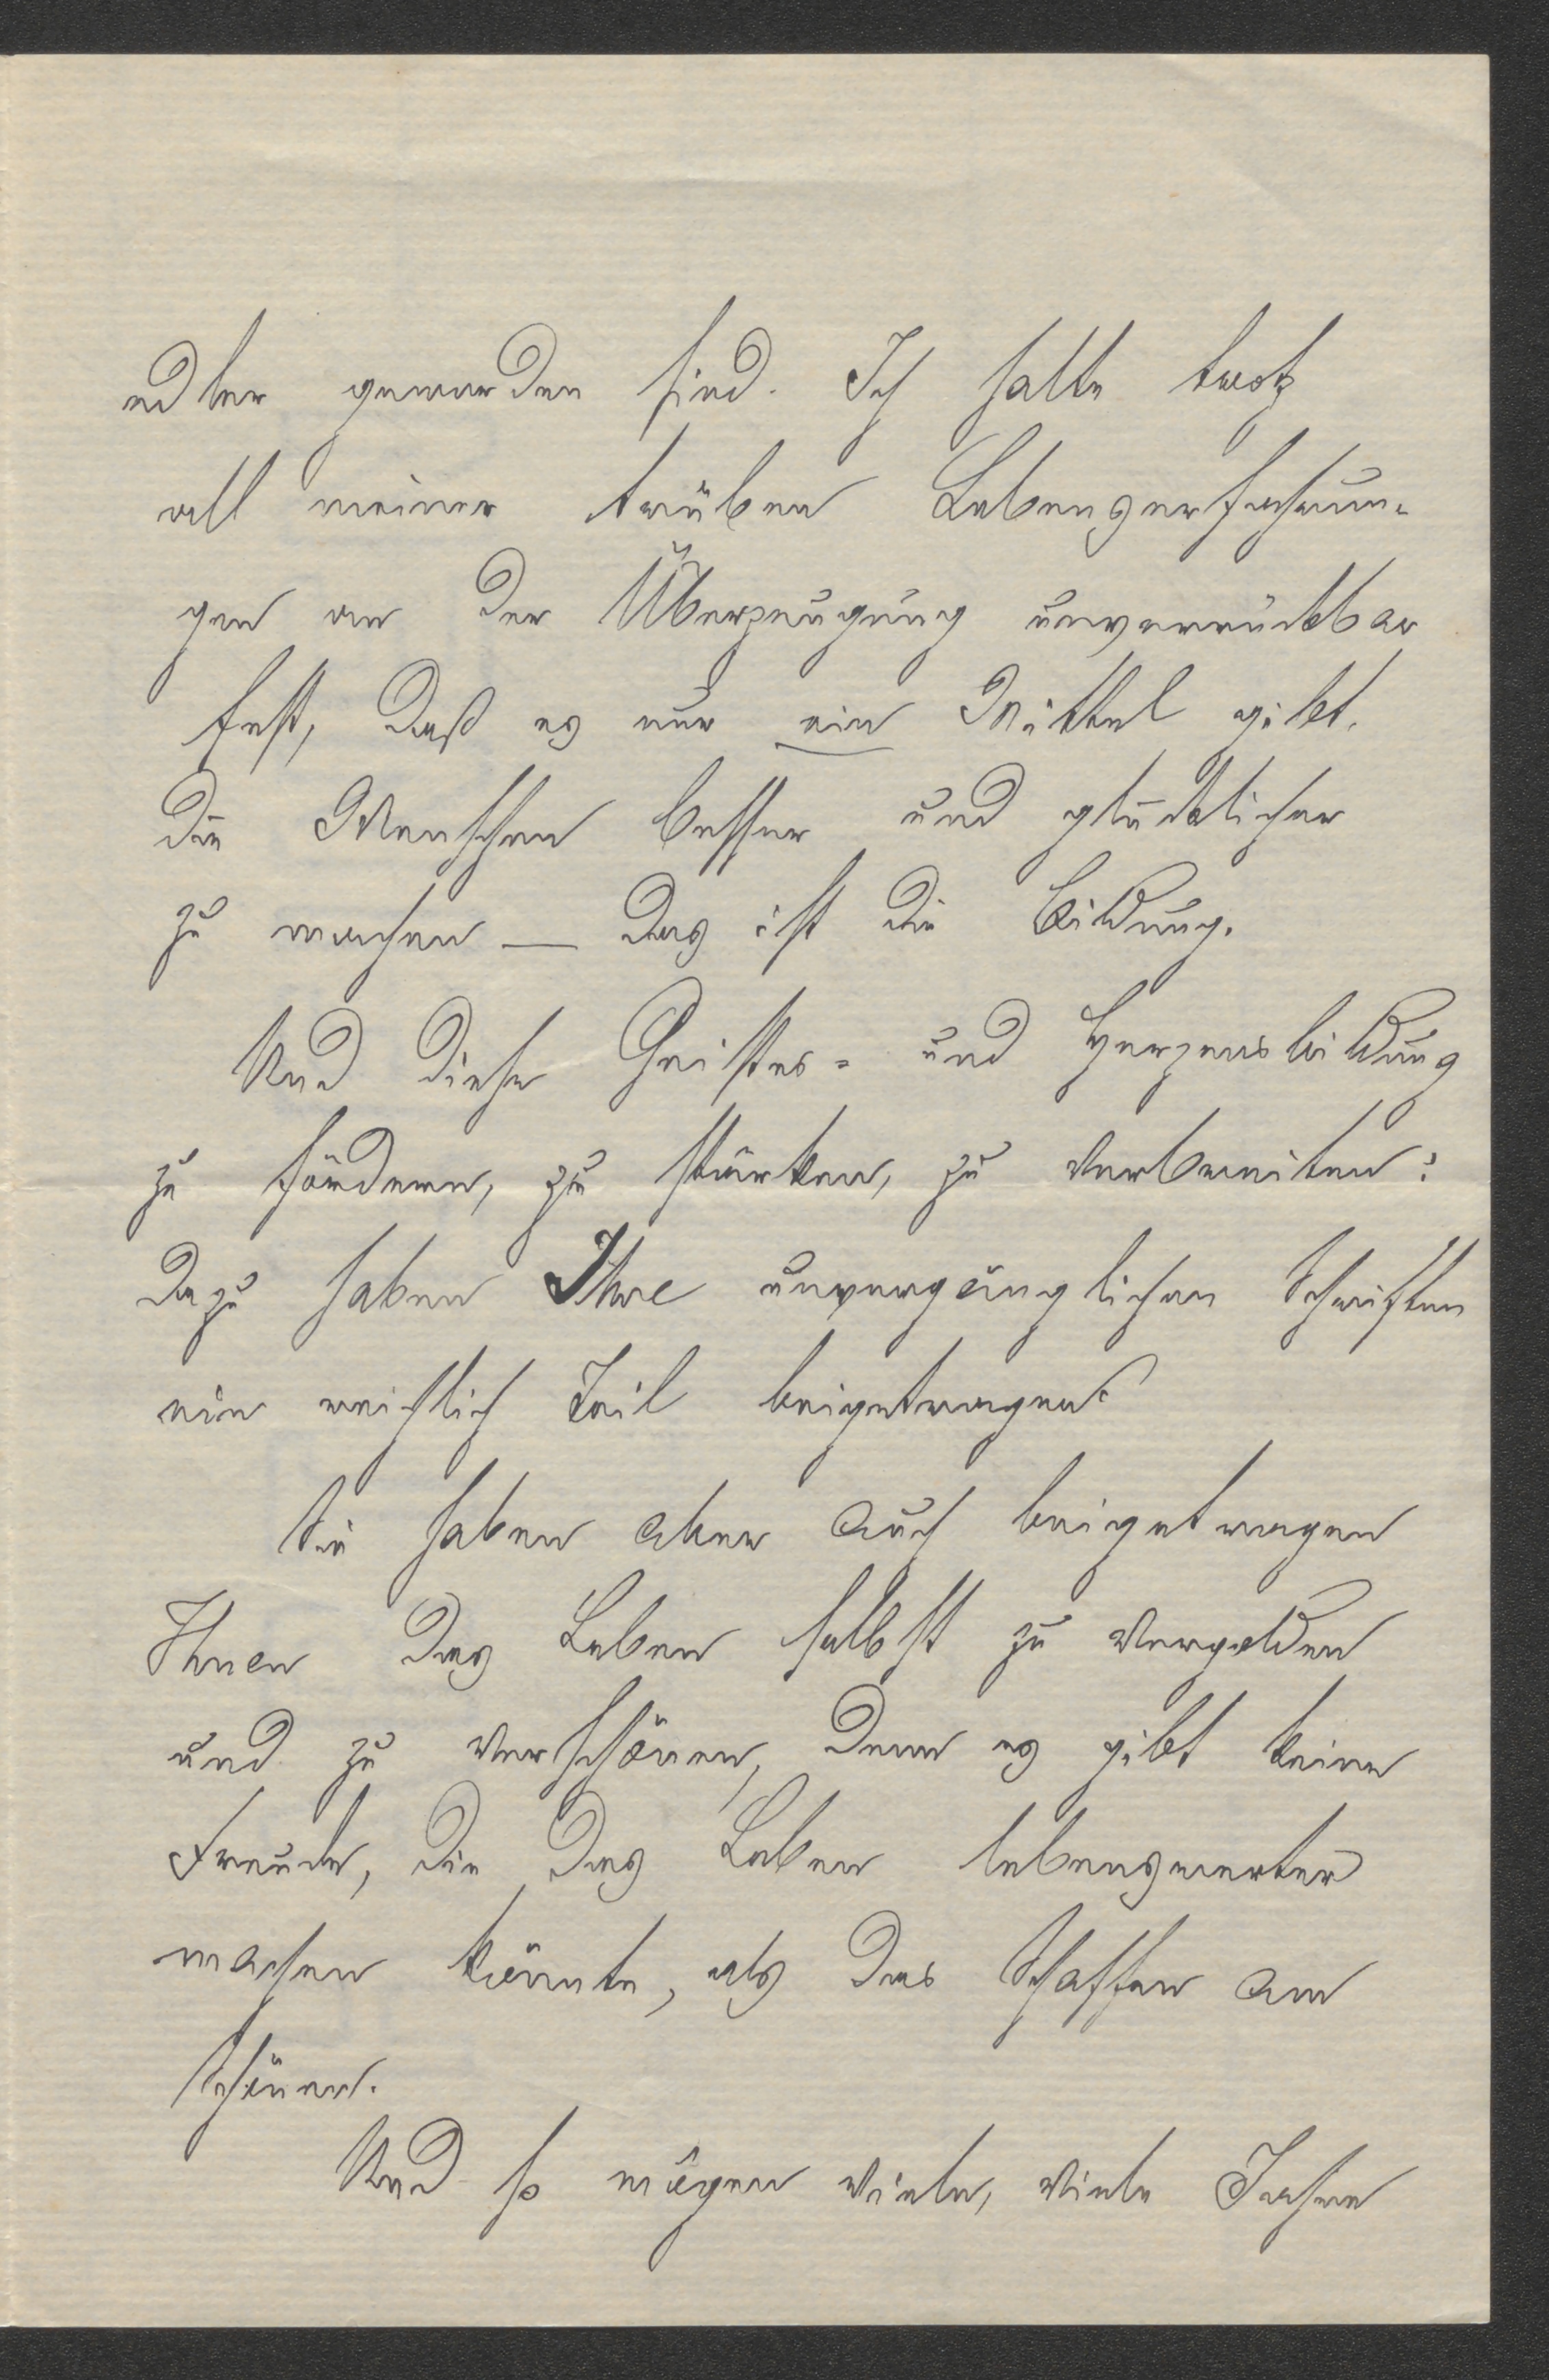 edler geworden sind. Ich halte trotz
all meiner trüben Lebenserfahrun-
gen an der Überzeugung unverrückbar
fest, daß es nur ein Mittel gibt,
die Menschen besser und glücklicher
zu machen — das ist die Bildung.
Und diese Geistes- und Herzensbildung
zu fördern, zu stärken, zu verbreiten:
dazu haben Ihre unvergänglichen Schriften
ein reichlich Teil beigetragen.
Sie haben aber auch beigetragen
Ihnen das Leben selbst zu vergolden
und zu verschönen, denn es gibt keine
Freude, die das Leben lebenswerter
machen könnte, als das Schaffen am
Schönen.
Und so mögen viele, viele Jahre